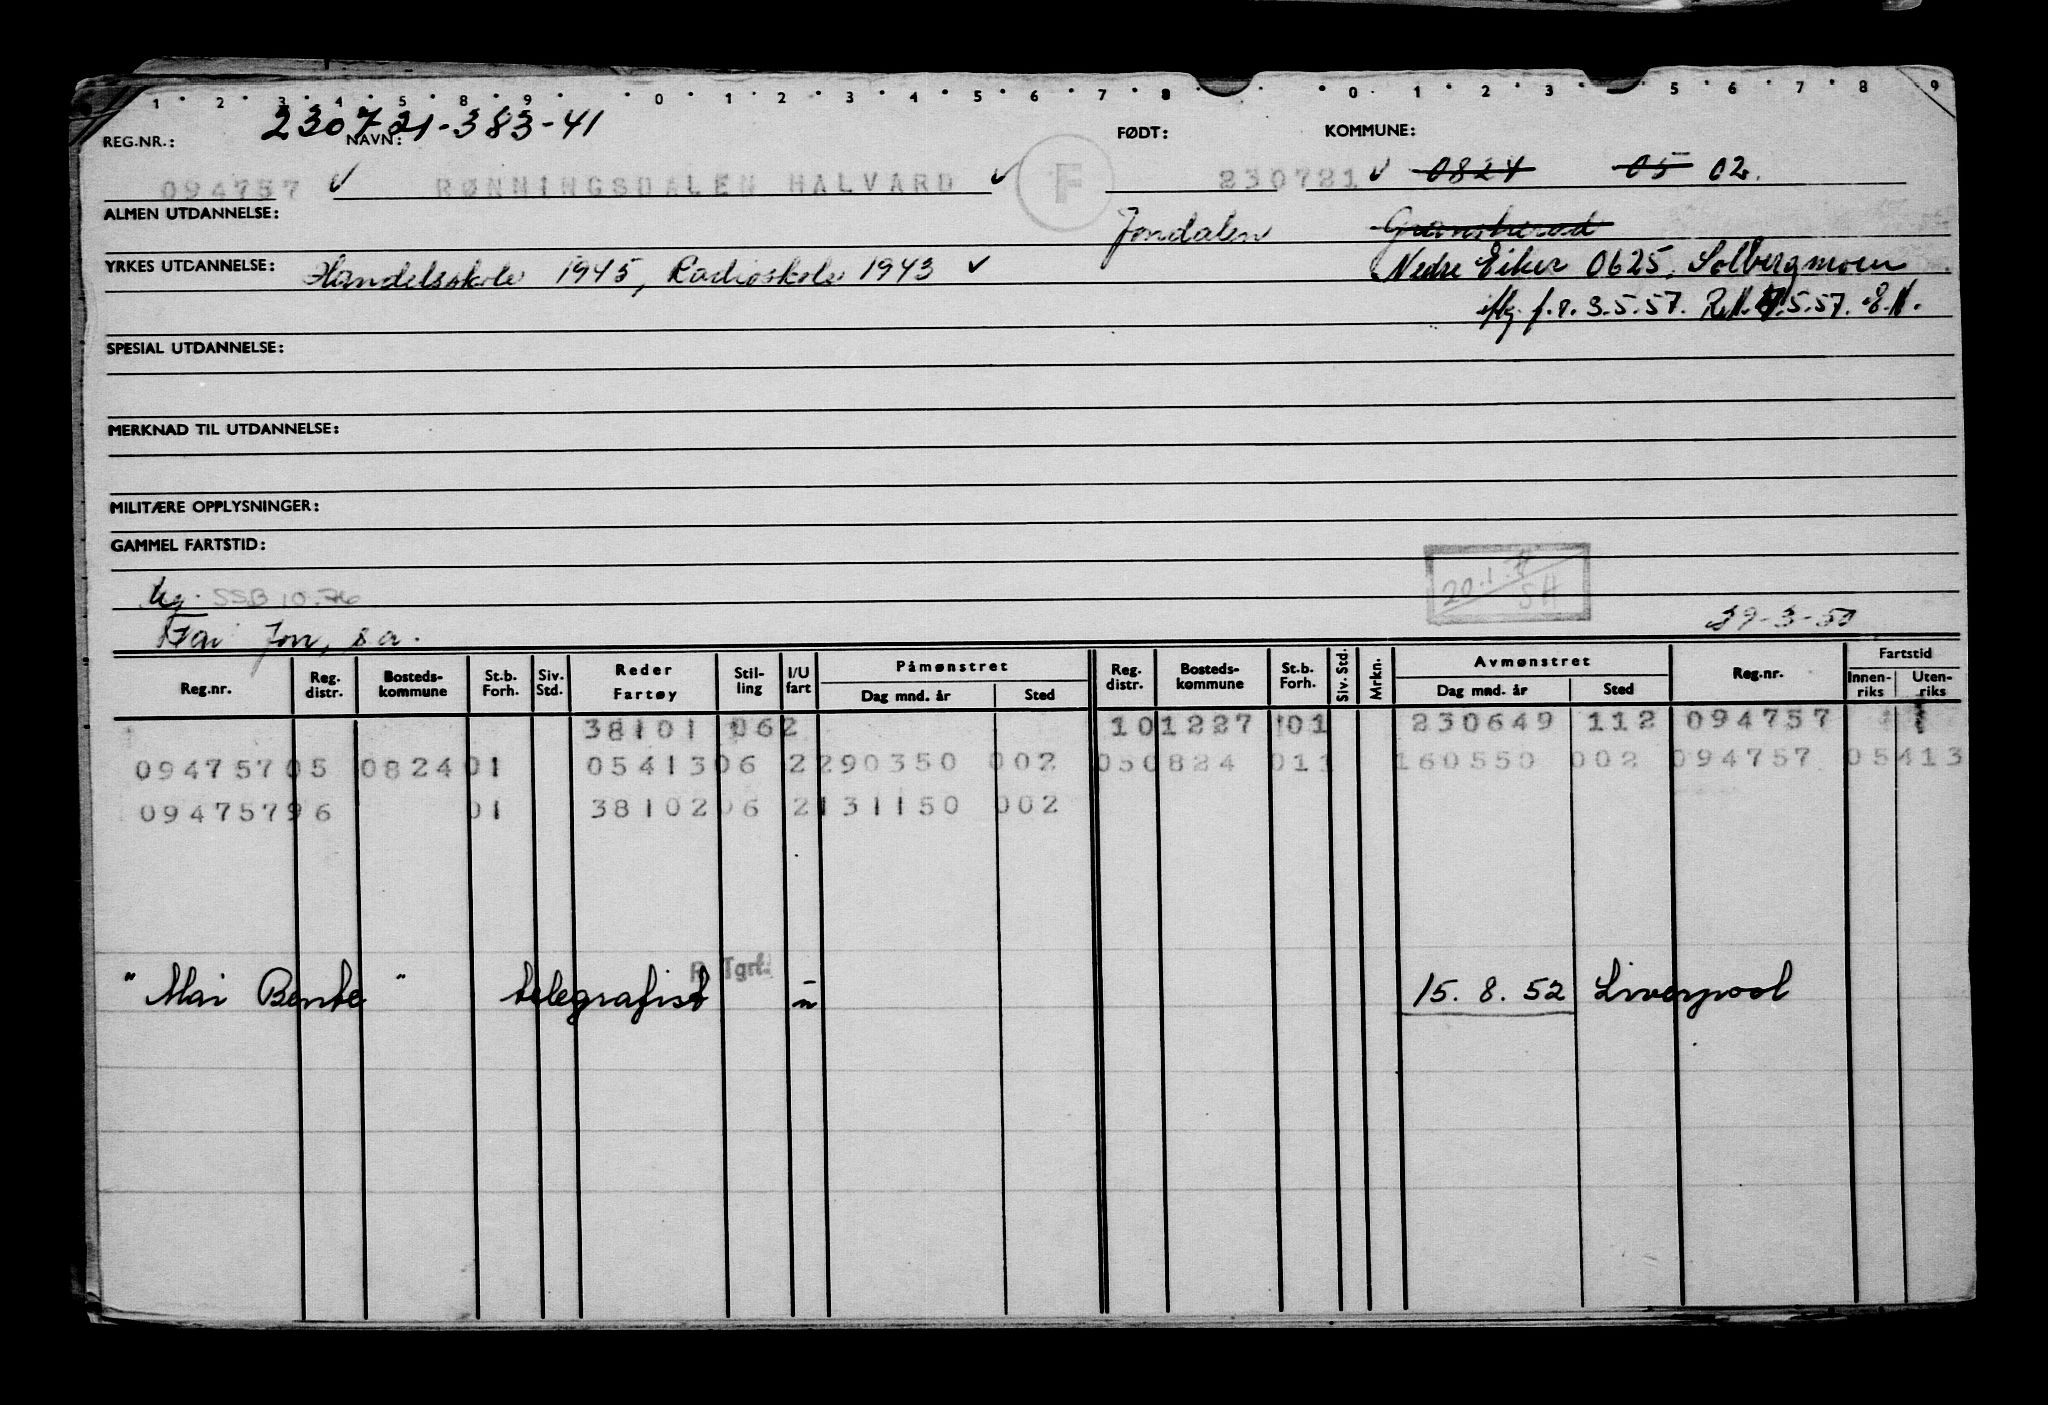 1 2 3 4 5 8 9 0 1 2 3 4 5 6 7 8 0 1 2 3 5 6 7 8 9
230721-383-41
REG.NR.: NAVN: FØDT: KOMMUNE:
094757 ✓ RØNNINGSDALEN HALVARD ✓ F 230721 ✓ 0824 05 02.
ALMEN UTDANNELSE: Jondalen Gransherad
YRKES UTDANNELSE: Handelsskole 1945, Radioskole 1943 ✓ Nedre Eiker 0625. Solbergmoen
f. 3.5.57. 5.57. E.N.
SPESIAL UTDANNELSE:
MERKNAD TIL UTDANNELSE:
MILITÆRE OPPLYSNINGER:
GAMMEL FARTSTID:
Ug. SSB 10.76 20.1. SH
Far Jon, s a. 29-3-50
Reg.nr. Reg. distr. Bosteds-kommune St.b. Forh. Siv. Std. Reder Fartøy Stil-ling I/U fart Påmønstret Dag mnd. år Sted Reg. distr. Bosteds-kommune St.b. Forh. Siv. Std. Mrkn. Avmønstret Dag mnd. år Sted Reg.nr. Fartstid Innen-riks Uten-riks
38101 062 101227 01 230649 112 094757
09475705 082401 0541306 2290350 002 050824 011 160550 002 094757 05413
09475796 01 3810206 2131150 002
R. Tgrf.
"Mai Bente" telegrafist u 15. 8. 52 Liverpool